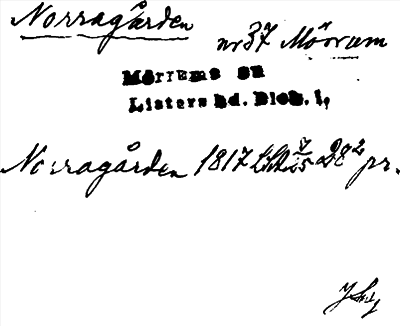 Norragården
nr 37 Mörrum
Mörrums sn
Listers hd. Blek. l.
Norragården 1817 pr.